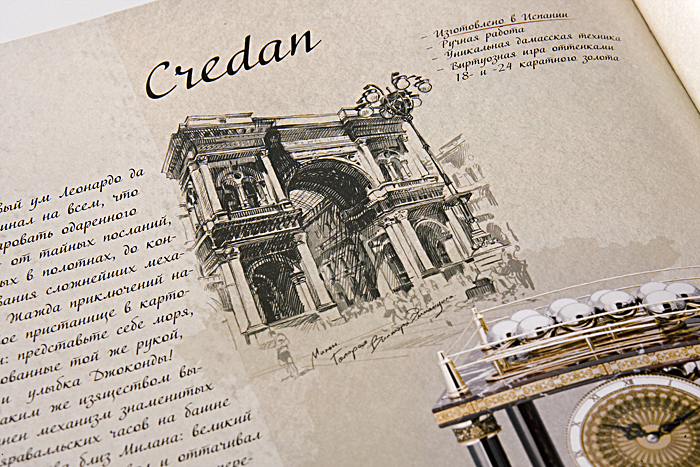 Credan
- Изготовлено в Испании
- Ручная работа
- Уникальная дамасская техника
- Виртуозная игра оттенками
18- и -24 каратного золота
вый ум Леонардо да
инал на всем, что
ировать одаренного
от тайных посланий,
ых в полотнах, до кон-
вания сложнейших меха-
Жажда приключений на-
ое пристанище в карто-
и: представьте себе моря,
ованные той же рукой,
и улыбка Джоконды!
аким же изяществом вы-
нен механизм знаменитых
яравалльских часов на башне
ва близ Милана: великий
л и оттачивал
пере-
Милан
Галерея Виктора Эммануила